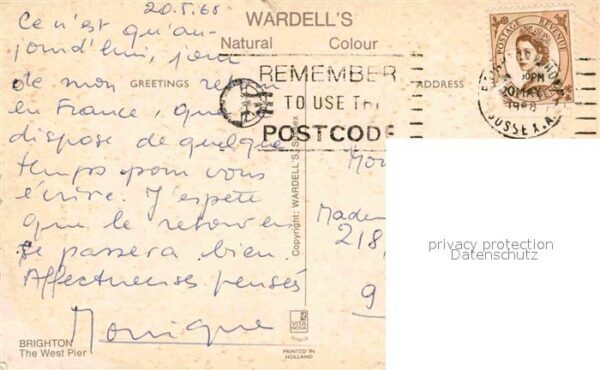 20.5.68
WARDELL'S
Natural Colour
Ce n'est qu'au-
jourd'hui, jour
de mon retour
en France, que je
dispose de quelque
temps pour vous
écrire. J'espère
que le retour en
se passera bien.
Affectueuses pensées
Monique
GREETINGS
ADDRESS
REMEMBER
TO USE THE
POSTCODE
POSTAGE REVENUE
PM
20 MAY
1968
SUSSEX.A
Copyright: WARDELL'S, Sussex
Mon
Madem
218,
9
privacy protection
Datenschutz
VITA
NOVA
PRINTED IN
HOLLAND
BRIGHTON
The West Pier